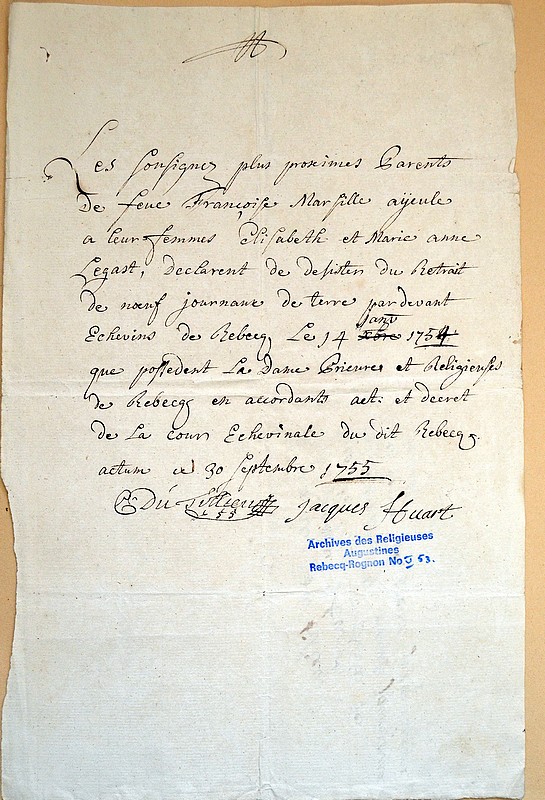 Les sousignez plus proximes Parents
de feue Françoise Marsille ayeule
a leur femmes Elisabeth et Marie anne
Legast, Declarent de desister du Retrait
de nœuf journaux de terre pardevant
janv
Echevins de Rebecq Le 14 xbre 1754
que possedent La Dame Prieure et Religieuses
de Rebecq en accordants act: et decret
de La cour Echevinale du dit Rebecq
actum ce 30 Septembre 1755
Du Jacques Huart
Archives des Religieuses
Augustines
Rebecq-Rognon No 53.